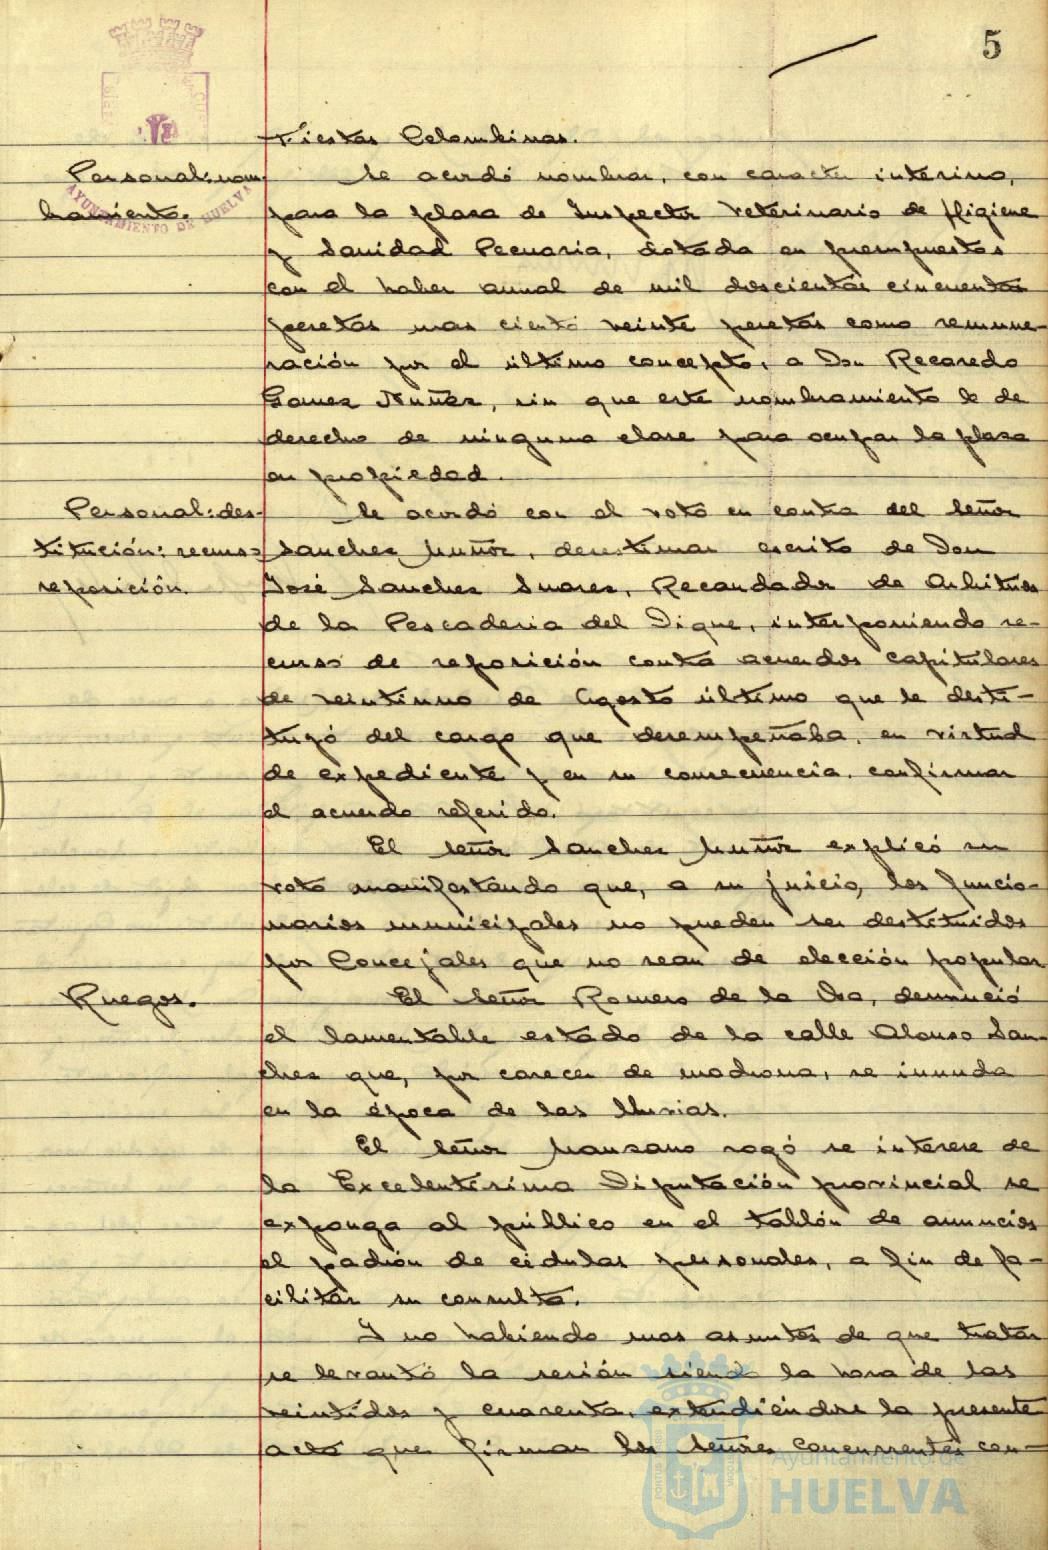 5
Fiestas Colombinas.
Personal: nom-
bramiento.
Se acordó nombrar, con caracter interino,
para la plaza de Inspector Veterinario de Higiene
y Sanidad Pecuaria, dotada en presupuestos
con el haber anual de mil doscientas cincuenta
pesetas mas ciento veinte pesetas como remune-
ración por el último concepto, a Don Recaredo
Gomez Nuñez, sin que este nombramiento le de
derecho de ninguna clase para ocupar la plaza
en propiedad.
Personal: des-
titución: recurso
reposición.
Se acordó con el voto en contra del Señor
Sanchez Muñoz, desestimar escrito de Don
José Sanchez Suarez, Recaudador de Arbitrios
de la Pescaderia del Dique, interponiendo re-
curso de reposición contra acuerdos capitulares
de veintiuno de Agosto último que le desti-
tuyó del cargo que desempeñaba, en virtud
de expediente y en su consecuencia, confirmar
el acuerdo referido.
El Señor Sanchez Muñoz explicó su
voto manifestando que, a su juicio, los funcio-
narios municipales no pueden ser destituidos
por Concejales que no sean de elección popular
Ruegos.
El Señor Romero de la Osa, denunció
el lamentable estado de la calle Alonso San-
chez que, por carecer de madrona, se inunda
en la época de las lluvias.
El Señor Manzano rogó se interese de
la Excelentisima Diputación provincial se
exponga al público en el tablón de anuncios
el padrón de cédulas personales, a fin de fa-
cilitar su consulta.
Y no habiendo mas asuntos de que tratar
se levantó la sesión siendo la hora de las
veintidos y cuarenta, extendiéndose la presente
acta que firman los Señores concurrentes con-
AYUNTAMIENTO DE HUELVA
Ayuntamiento de
HUELVA